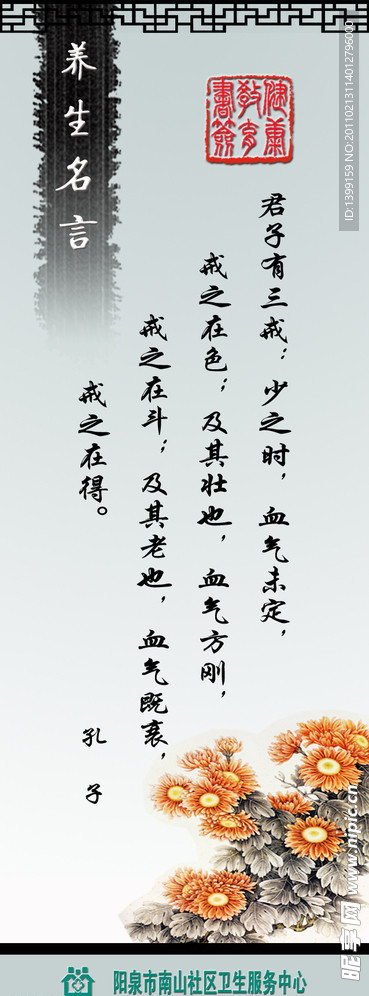 养生名言
健康教育书签
君子有三戒：少之时，血气未定，
戒之在色；及其壮也，血气方刚，
戒之在斗；及其老也，血气既衰，
戒之在得。
孔子
阳泉市南山社区卫生服务中心
ID:1399159 NO:20110213114012796000
昵享网 www.nipic.cn